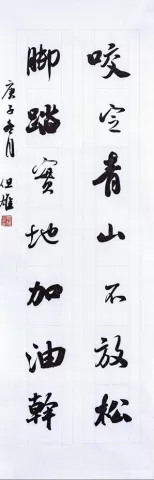 咬定青山不放松
脚踏實地加油幹
庚子冬月
但雄